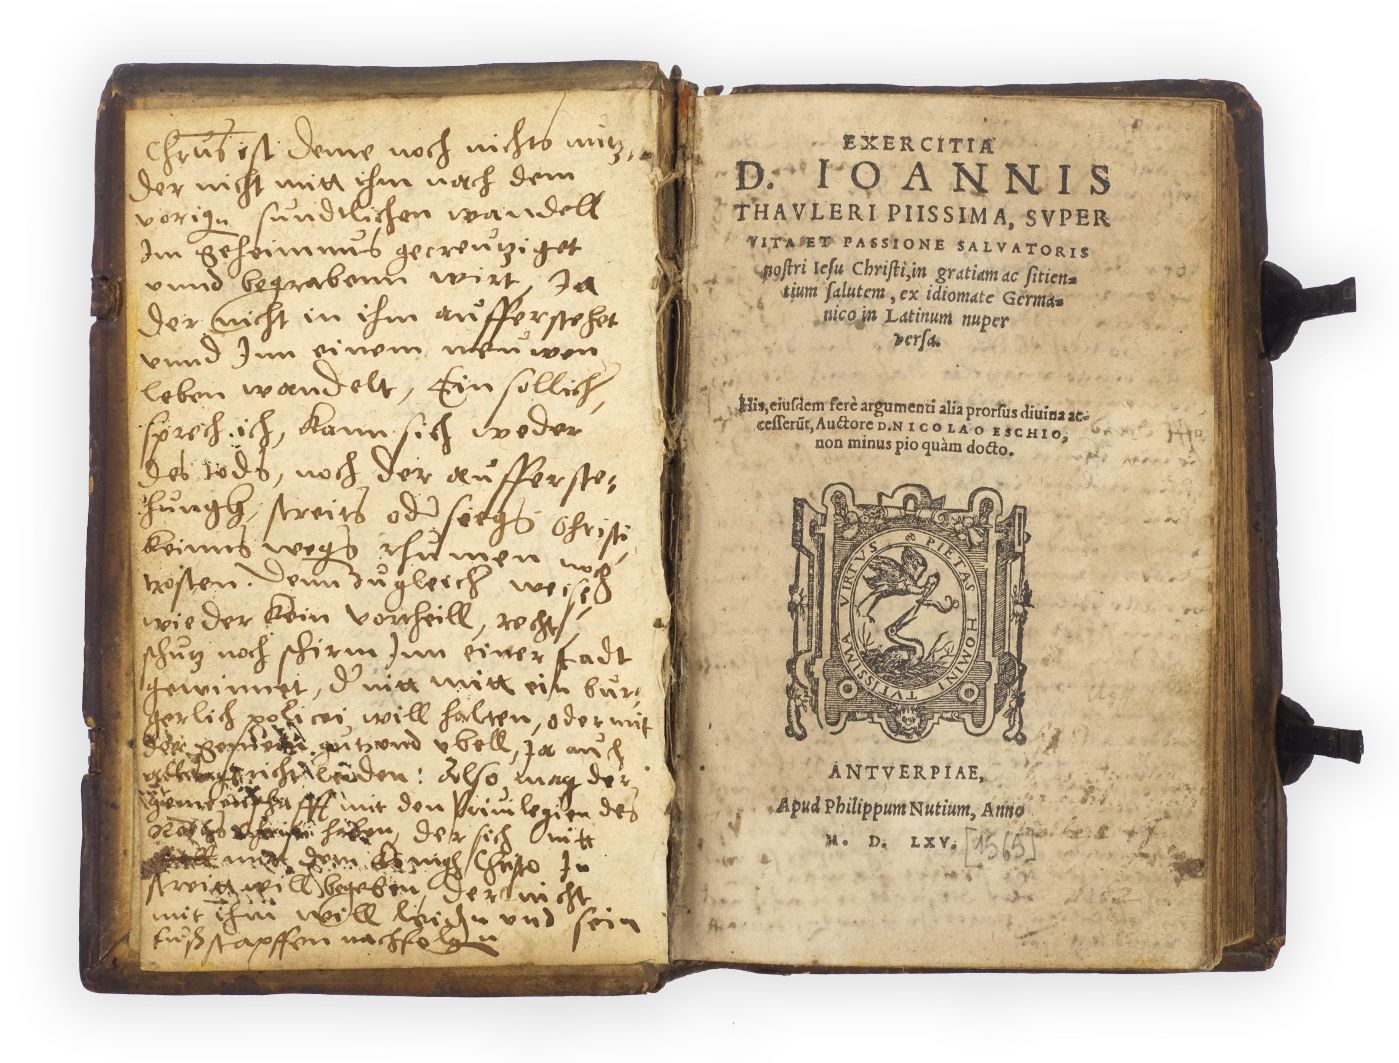 Chrûs ist deme noch nichts nutz,
der nicht mitt ihm nach dem
vorign sündtlichen wandell
Im geheimnus gecreutziget
vnnd begrabenn wirt, Ja
der nicht in ihm aufferstehet
vnnd Inn einem neuwen
leben wandelt, Ein sollich,
sprech ich, kann sich weder
des tods, noch der aufferste-
hungh, streits oder seegs Christi
keinns wegs rhumen noch
trosten. Denn zugleich weiß
wie der kein vortheill, recht,
schutz noch schirm Inn einer stadt
gewinnet, der nitt mitt ein bur-
gerlich policei will halten, oder mit
der gemein gutz vnd vbell, Ja auch
leiden: Also mag der
mit den Priuilegien des
haben, der sich nitt
mit dem
streitt will begeben, der nicht
mit ihm will leiden vnd sein
fußstapffen nachfolgen
EXERCITIA
D. IOANNIS
THAVLERI PIISSIMA, SVPER
VITA ET PASSIONE SALVATORIS
nostri Iesu Christi, in gratiam ac sitien-
tium salutem, ex idiomate Germa-
nico in Latinum nuper
versa.
His, eiusdem ferè argumenti alia prorsus diuina ac-
cesserūt, Auctore D. NICOLAO ESCHIO,
non minus pio quàm docto.
PIETAS HOMINI TVTISSIMA VIRTVS
ANTVERPIAE,
Apud Philippum Nutium, Anno
M. D. LXV. [1565]